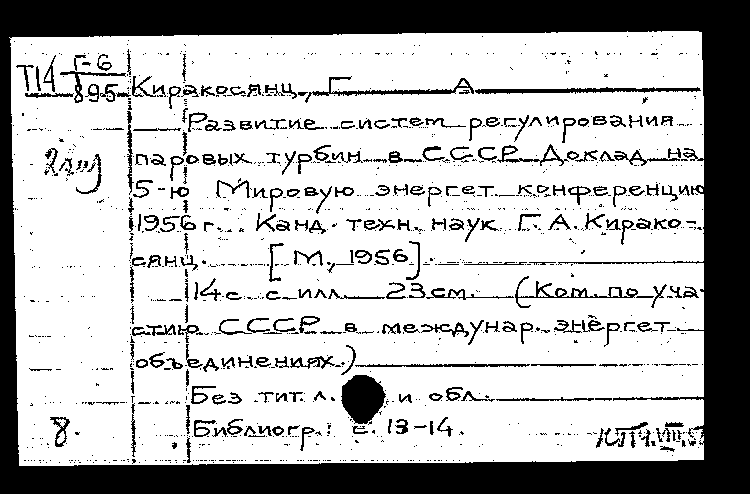 Т14 Г-6
895 Киракосянц, Г А
Развитие систем регулирования
паровых турбин в СССР. Доклад на
5-ю Мировую энергет конференцию
1956 г. Канд. техн. наук Г. А. Кирако-
сянц. [М., 1956].
14 с с илл. 23 см. (Ком. по уча-
стию СССР в междунар. энергет
объединениях.)
Без тит. л. и обл.
8. Библиогр.: с. 13-14.